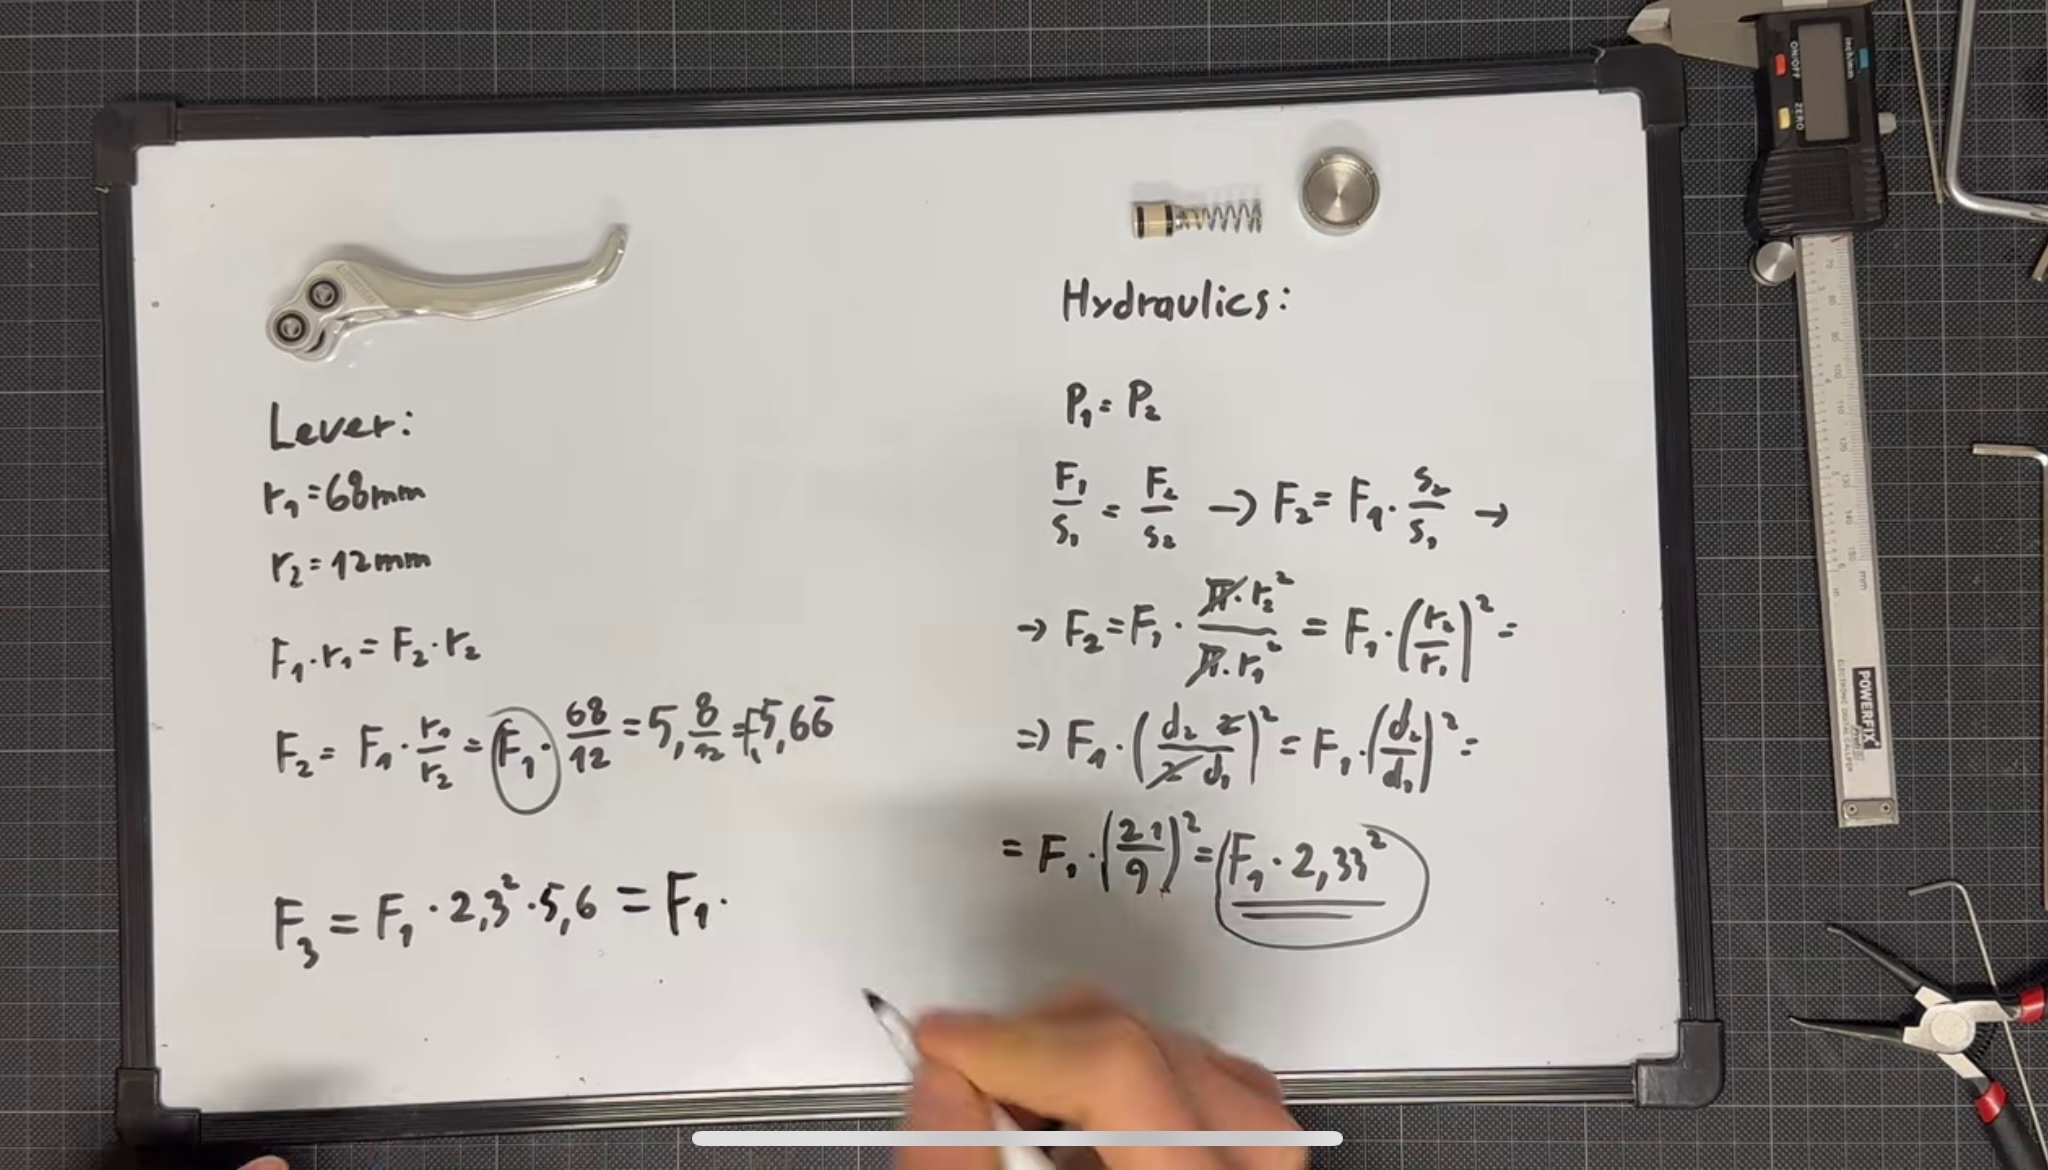 Lever:
r₁ = 68mm
r₂ = 12mm
F₁·r₁ = F₂·r₂
F₂ = F₁·r₁/r₂ = F₁·68/12 = 5,8/12 = F₁5,66̅
F₃ = F₁·2,3²·5,6 = F₁·
Hydraulics:
P₁ = P₂
F₁/S₁ = F₂/S₂ → F₂ = F₁·S₂/S₁ →
→ F₂ = F₁·π·r₂²/π·r₁² = F₁·(r₂/r₁)² =
⇒ F₁·(d₂ 2/2 d₁)² = F₁·(d₂/d₁)² =
= F₁·(21/9)² = F₁·2,33²
inch/mm
ON/OFF
ZERO
POWERFIX
ELECTRONIC DIGITAL CALIPER
mm
in